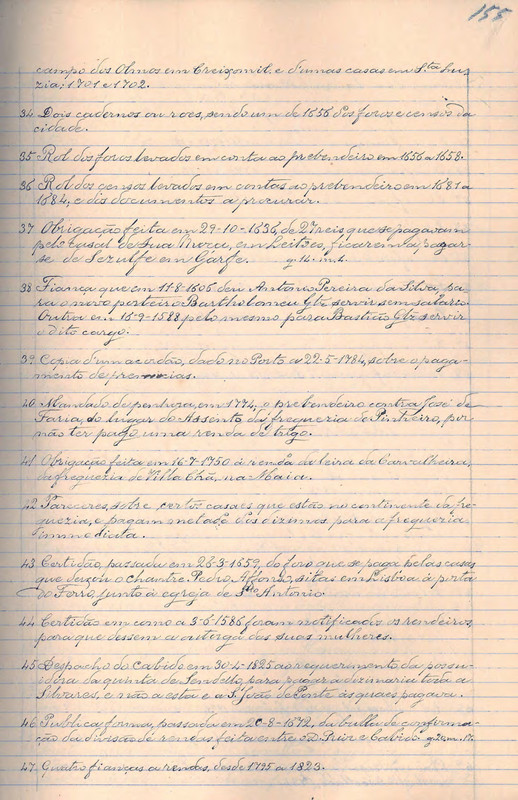 155
campo dos Olmos em Creixomil, e d'umas casas em S.ta Lu-
zia; 1701 e 1702.
34 Dois cadernos ou roes, sendo um de 1656 dos foros e censos da
cidade.
35 Rol dos foros levados em conta ao prebendeiro em 1656 a 1658.
36 Rol dos censos levados em contas ao prebendeiro em 1681 a
1684, e dis documentos a procurar.
37 Obrigação feita em 29-10-1636, de 27 reis que se pagavam
pelo Casal de em Leitões, ficarem a pagar-
se de Sezulfe em Garfe.
38 Fiança que em 11-8-1606 deu Antonio Pereira da Silva, pa-
ra o novo porteiro Bartholomeu Glz servir sem salario.
Outra e.. 16-9-1588 pelo mesmo para Bastião Glz servir
o dito cargo.
39 Copia d'um acordão, dado no Porto a 22-5-1784, sobre o paga-
mento de premicias.
40 Mandado de penhora, em 1774, o prebendeiro contra José de
Faria, do lugar do Assento da freguezia de Pinheiro, por
não ter pago uma renda de trigo.
41 Obrigação feita em 16-7-1750 á renda da leira da Carvalheira,
da freguezia de Villa Chã, na Maia.
42 Pareceres, sobre certos casaes que estão no continente da fre-
guezia, e pagam metade dos dizimos para a freguezia
immediata.
43 Certidão, passada em 26-3-1559, do foro que se paga pelas casas
que deixou o chantre Pedro Affonso, sitas em Lisboa á porta
do Ferro, junto á egreja de S.to Antonio.
44 Certidão em como a 3-6-1586 foram notificados os rendeiros
para que dessem a outorga das suas mulheres.
45 Despacho do Cabido em 30-4-1825 ao requerimento da possui-
dora da quinta de Sendello, para pagar a dizimaria toda a
Silvares, e não a esta e a S. João de Ponte ás quaes pagava.
46 Publica forma, passada em 20-8-1572, da bulla de confirma-
ção da divisão de rendas feita entre o D. Prior e Cabido
47 Quatro fianças a rendas, desde 1795 a 1823.